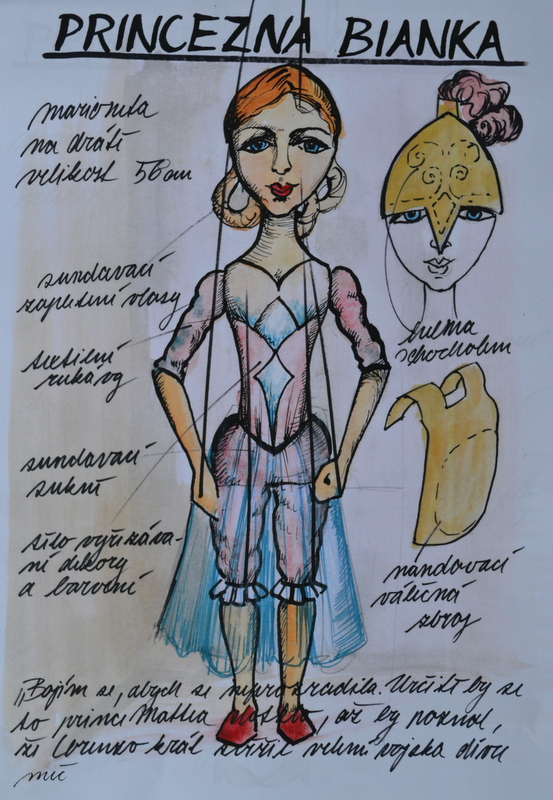 PRINCEZNA BIANKA
marioneta
na drátě
velikost 56 cm
sundavací
zapletené vlasy
textilní
rukávy
sundavací
sukně
tělo vyřezáva-
né dekory
a barvení
helma
s chocholem
nandavací
válečná
zbroj
„Bojím se, abych se neprozradila. Určitě by se
to prince Mattea, až by poznal,
že Lorenzo král velmi vojska dívce